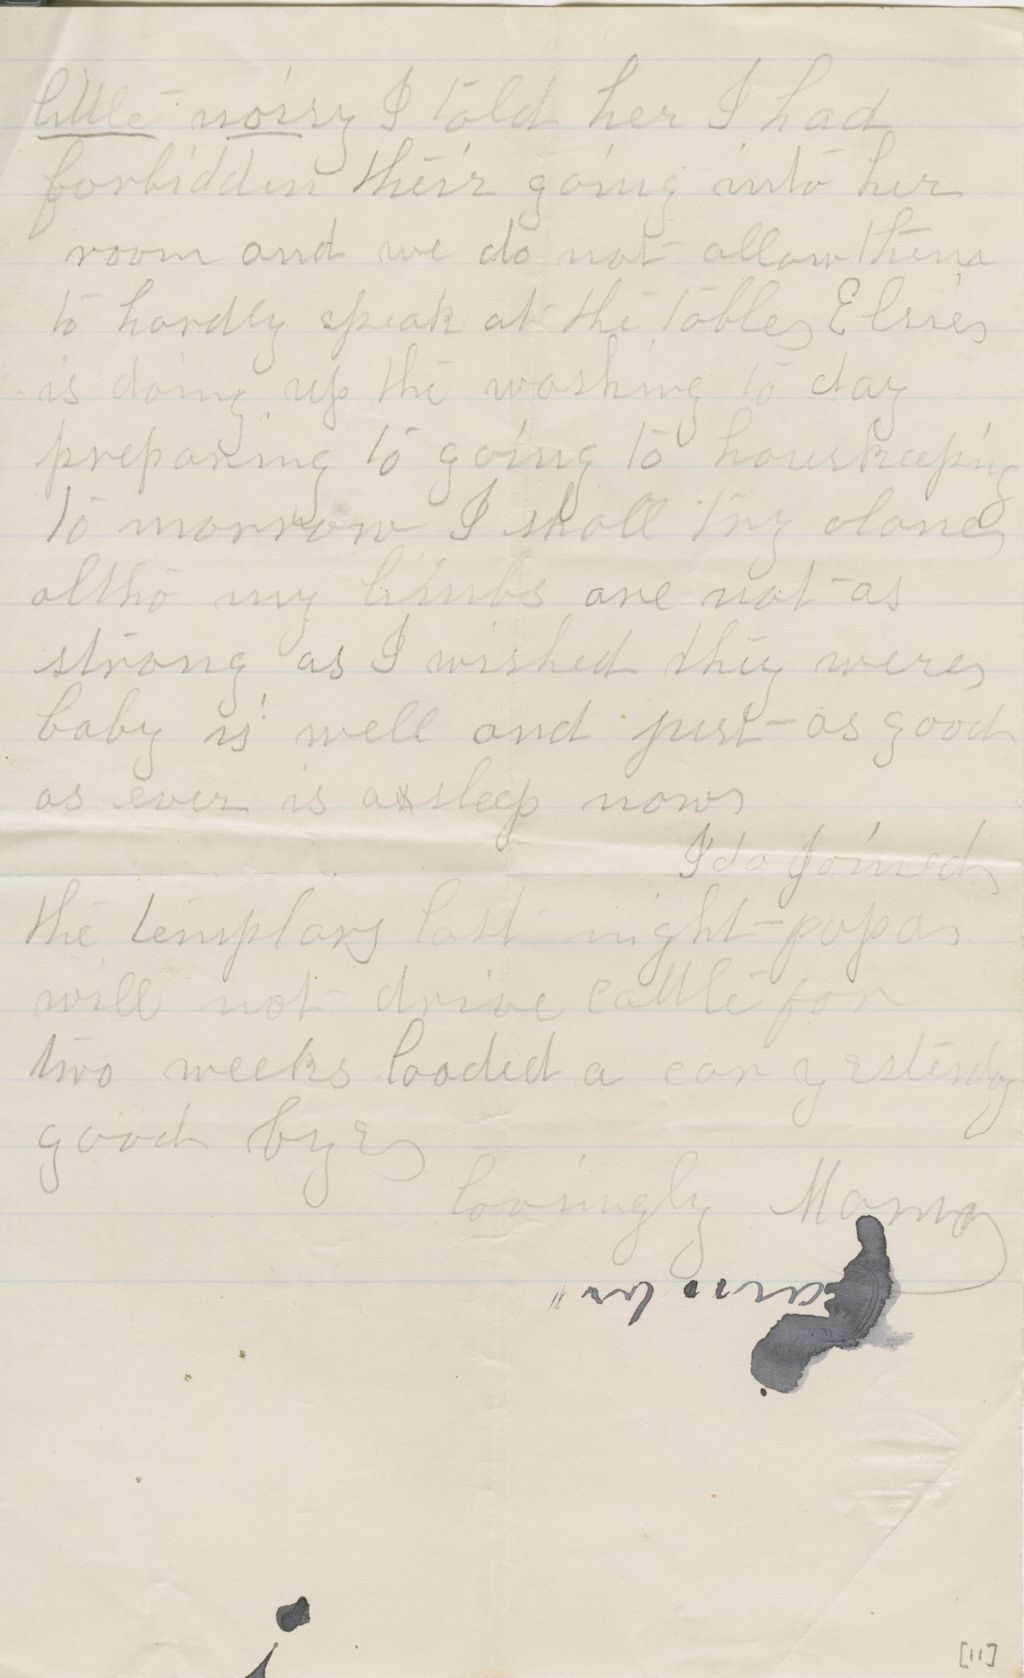 little noisy I told her I had
forbidden their going into her
room and we do not allow them
to hardly speak at the table, Elsie
is doing up the washing to day
preparing to going to housekeeping
to morrow I shall try alone,
altho my limbs are not as
strong as I wished they were,
baby is well and just as good
as ever is asleep now
Ida joined
the templars last night papa
will not drive cattle for
two weeks loaded a car yesterday
good bye
lovingly Mama
[11]